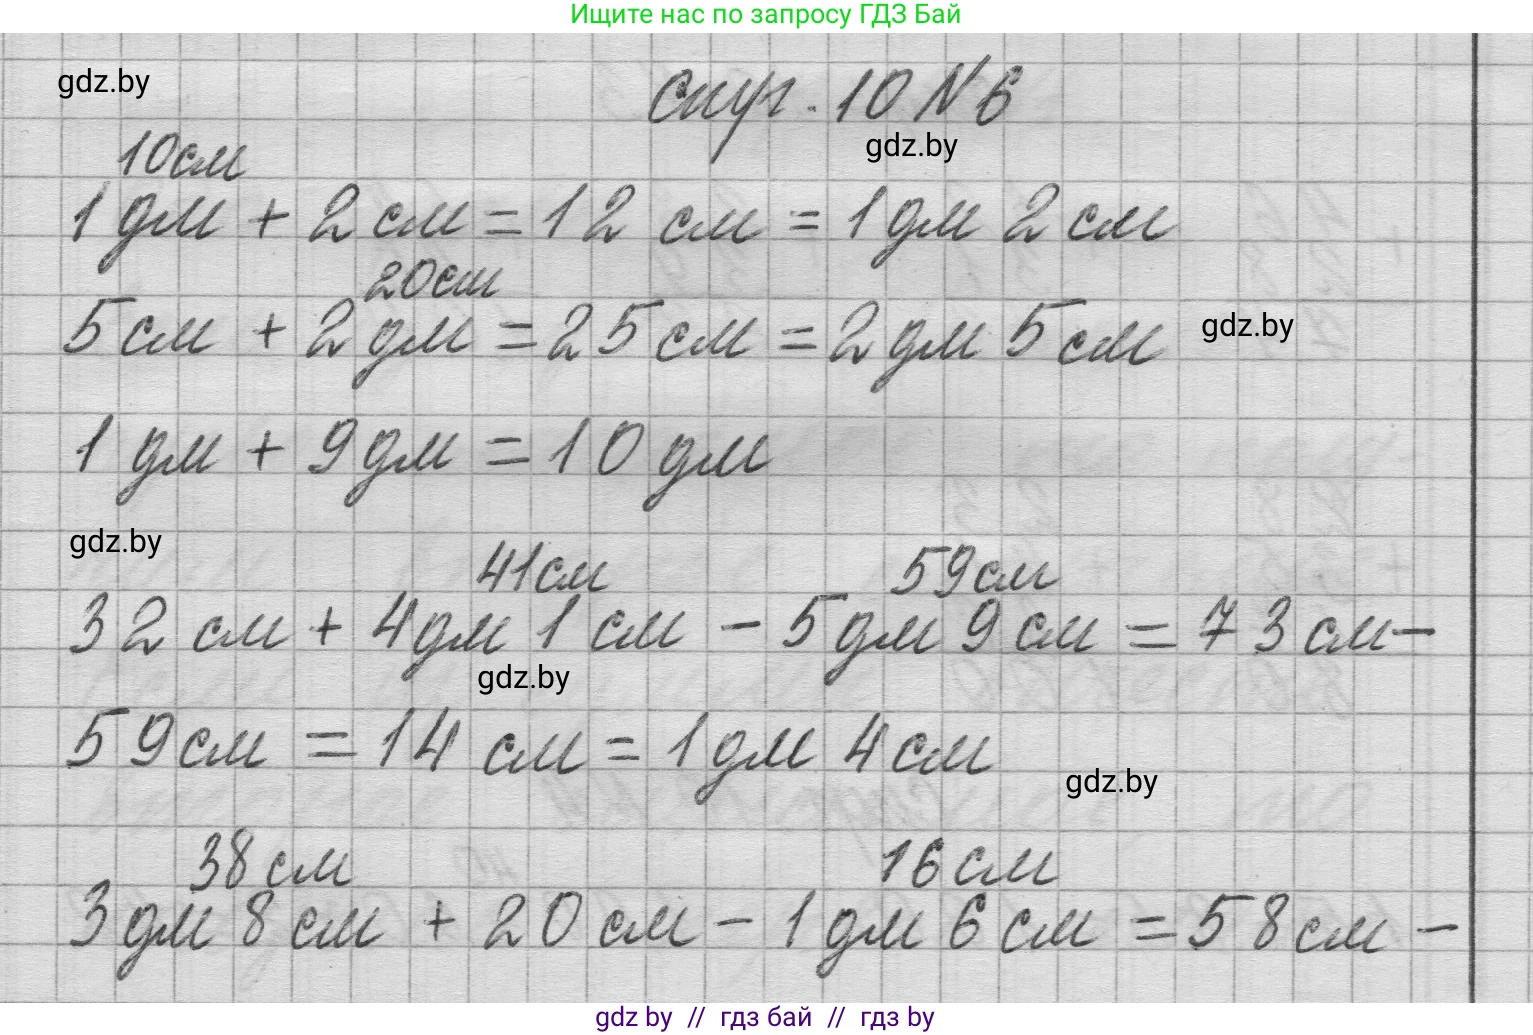 Ищите нас по запросу ГДЗ Бай
gdz.by
стр. 10 N 6
gdz.by
10см
1дм + 2см = 12 см = 1дм 2см
20см
5см + 2дм = 25см = 2дм 5см
gdz.by
1дм + 9дм = 10дм
gdz.by
41см 59см
32 см + 4дм 1см - 5дм 9см = 73см -
gdz.by
59см = 14 см = 1дм 4см
gdz.by
38см 16см
3дм 8см + 20см - 1дм 6см = 58см -
gdz by // гдз бай // гдз by